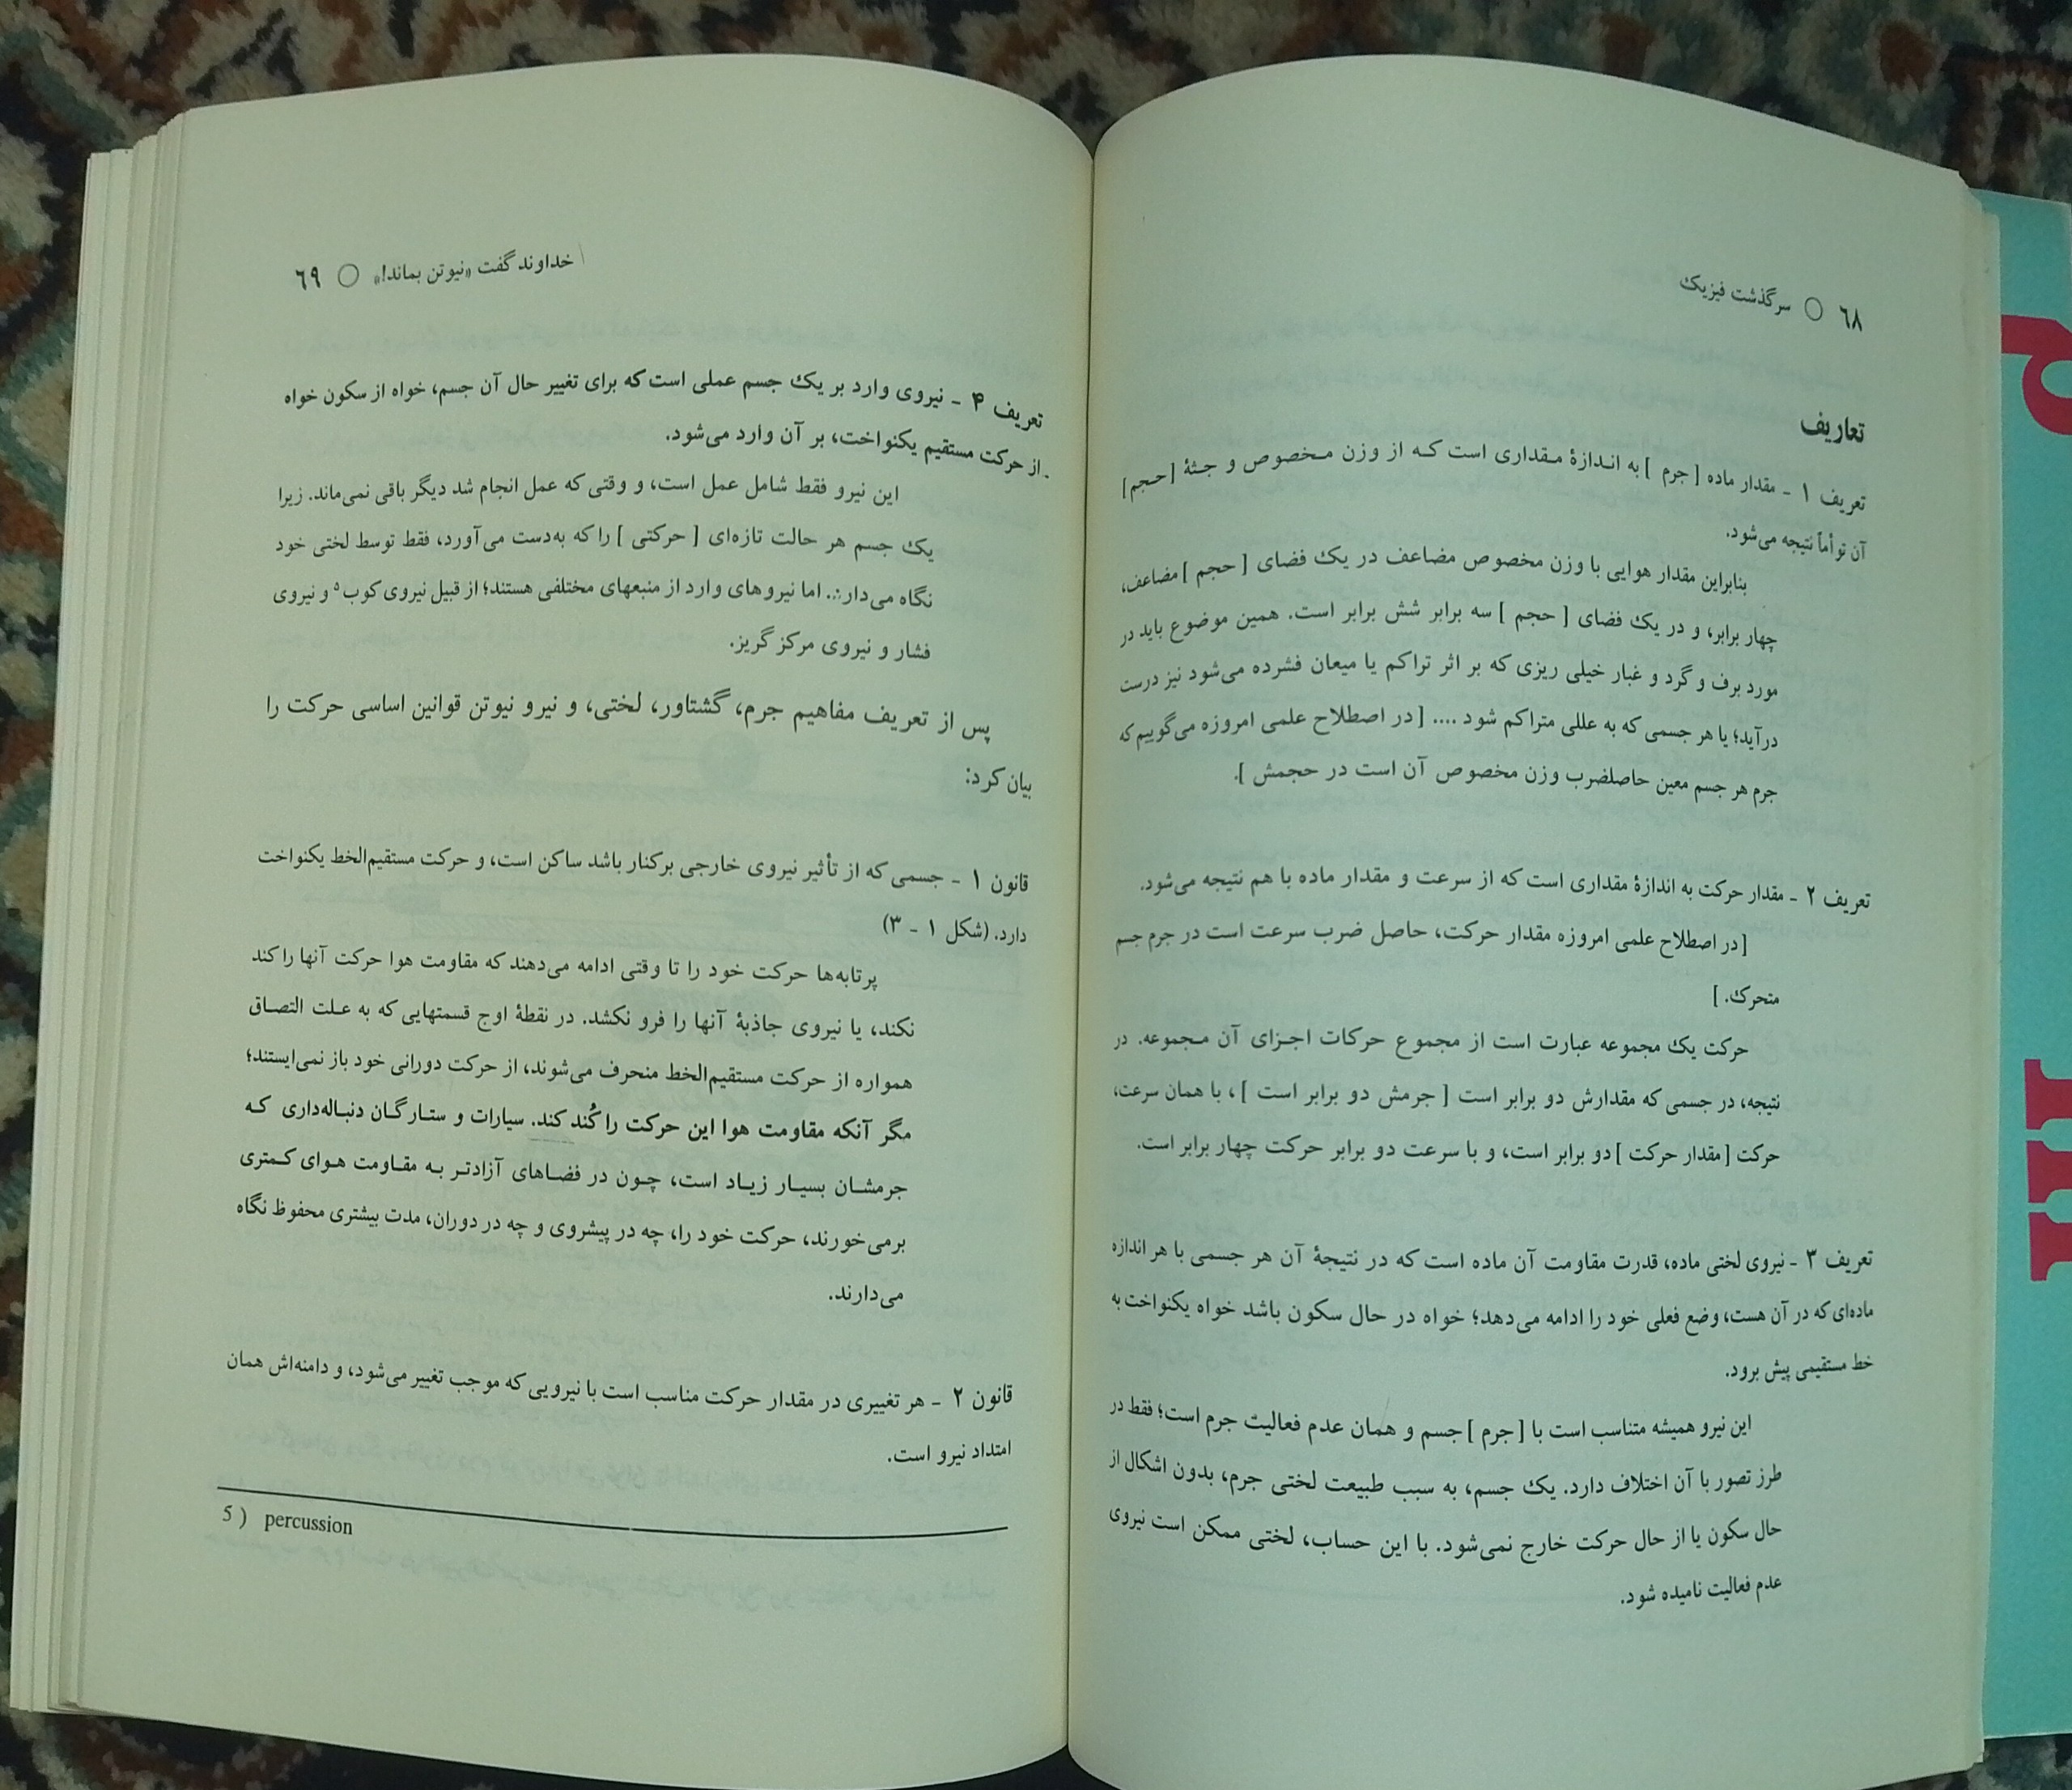 ۶۸ ○ سرگذشت فیزیک
تعاریف
تعریف ۱ - مقدار ماده [ جرم ] به اندازهٔ مقداری است که از وزن مخصوص و جثهٔ [حجم]
آن تو أماً نتیجه می‌شود.
بنابراین مقدار هوایی با وزن مخصوص مضاعف در یک فضای [ حجم ] مضاعف،
چهار برابر، و در یک فضای [ حجم ] سه برابر شش برابر است. همین موضوع باید در
مورد برف و گرد و غبار خیلی ریزی که بر اثر تراکم یا میعان فشرده می‌شود نیز درست
درآید؛ یا هر جسمی که به عللی متراکم شود .... [ در اصطلاح علمی امروزه می‌گوییم که
جرم هر جسم معین حاصلضرب وزن مخصوص آن است در حجمش ].
تعریف ۲ - مقدار حرکت به اندازهٔ مقداری است که از سرعت و مقدار ماده با هم نتیجه می‌شود.
[در اصطلاح علمی امروزه مقدار حرکت، حاصل ضرب سرعت است در جرم جسم
متحرک. ]
حرکت یک مجموعه عبارت است از مجموع حرکات اجزای آن مجموعه. در
نتیجه، در جسمی که مقدارش دو برابر است [ جرمش دو برابر است ] ، با همان سرعت،
حرکت [مقدار حرکت ] دو برابر است، و با سرعت دو برابر حرکت چهار برابر است.
تعریف ۳ - نیروی لختی ماده، قدرت مقاومت آن ماده است که در نتیجهٔ آن هر جسمی با هر اندازه
ماده‌ای که در آن هست، وضع فعلی خود را ادامه می‌دهد؛ خواه در حال سکون باشد خواه یکنواخت به
خط مستقیمی پیش برود.
این نیرو همیشه متناسب است با [ جرم ] جسم و همان عدم فعالیت جرم است؛ فقط در
طرز تصور با آن اختلاف دارد. یک جسم، به سبب طبیعت لختی جرم، بدون اشکال از
حال سکون یا از حال حرکت خارج نمی‌شود. با این حساب، لختی ممکن است نیروی
عدم فعالیت نامیده شود.
خداوند گفت «نیوتن بماند!» ○ ۶۹
تعریف ۴ - نیروی وارد بر یک جسم عملی است که برای تغییر حال آن جسم، خواه از سکون خواه
از حرکت مستقیم یکنواخت، بر آن وارد می‌شود.
این نیرو فقط شامل عمل است، و وقتی که عمل انجام شد دیگر باقی نمی‌ماند. زیرا
یک جسم هر حالت تازه‌ای [ حرکتی ] را که به‌دست می‌آورد، فقط توسط لختی خود
نگاه می‌دارد. اما نیروهای وارد از منبعهای مختلفی هستند؛ از قبیل نیروی کوب۵ و نیروی
فشار و نیروی مرکز گریز.
پس از تعریف مفاهیم جرم، گشتاور، لختی، و نیرو نیوتن قوانین اساسی حرکت را
بیان کرد:
قانون ۱ - جسمی که از تأثیر نیروی خارجی برکنار باشد ساکن است، و حرکت مستقیم‌الخط یکنواخت
دارد. (شکل ۱ - ۳)
پرتابه‌ها حرکت خود را تا وقتی ادامه می‌دهند که مقاومت هوا حرکت آنها را کند
نکند، یا نیروی جاذبهٔ آنها را فرو نکشد. در نقطهٔ اوج قسمتهایی که به علت التصاق
همواره از حرکت مستقیم‌الخط منحرف می‌شوند، از حرکت دورانی خود باز نمی‌ایستند؛
مگر آنکه مقاومت هوا این حرکت را کُند کند. سیارات و ستارگان دنباله‌داری که
جرمشان بسیار زیاد است، چون در فضاهای آزادتر به مقاومت هوای کمتری
برمی‌خورند، حرکت خود را، چه در پیشروی و چه در دوران، مدت بیشتری محفوظ نگاه
می‌دارند.
قانون ۲ - هر تغییری در مقدار حرکت مناسب است با نیرویی که موجب تغییر می‌شود، و دامنه‌اش همان
امتداد نیرو است.
5 ) percussion